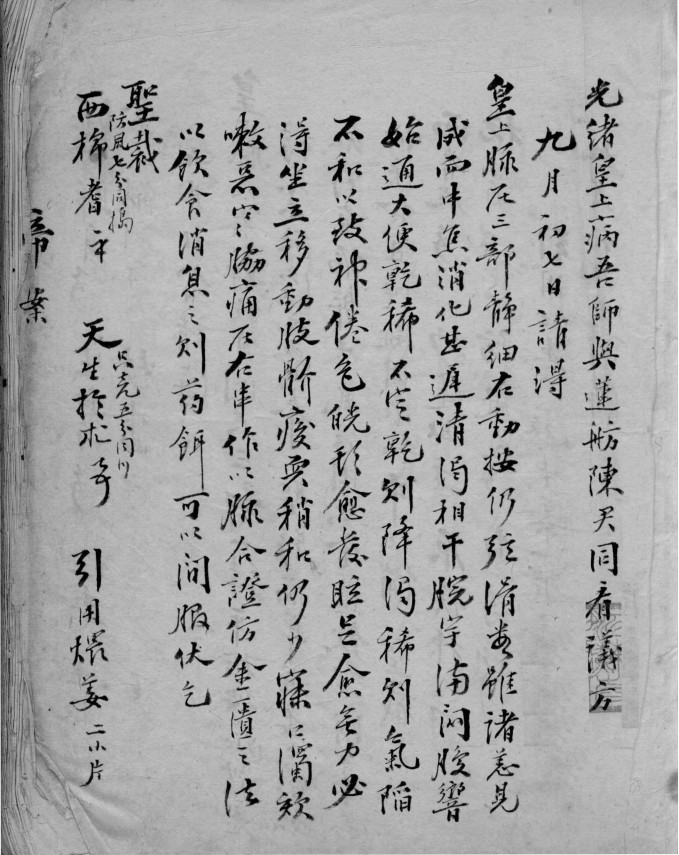 光緒皇上病吾師與蓮舫陳君同看議方
九月初七日請得
皇上脉左三部靜細右動按仍弦滑者雖諸恙見
減而中焦消化甚遲清濁相干脘宇滿悶腹響
始通大便乾稀不定乾則降濁稀則氣陷
不和以致神倦色㿠愈發眩足愈無力必
得坐立移動肢骱痠耎稍和仍少寐口濁欬
嗽惡寒脇痛左右串作以脉合證仿金匱之法
以飲食消息之則葯餌可以間服伏乞
聖裁
西棉耆 防風七分同搗 天生於朮 只壳五分同炒 引用煨姜二小片
帝案